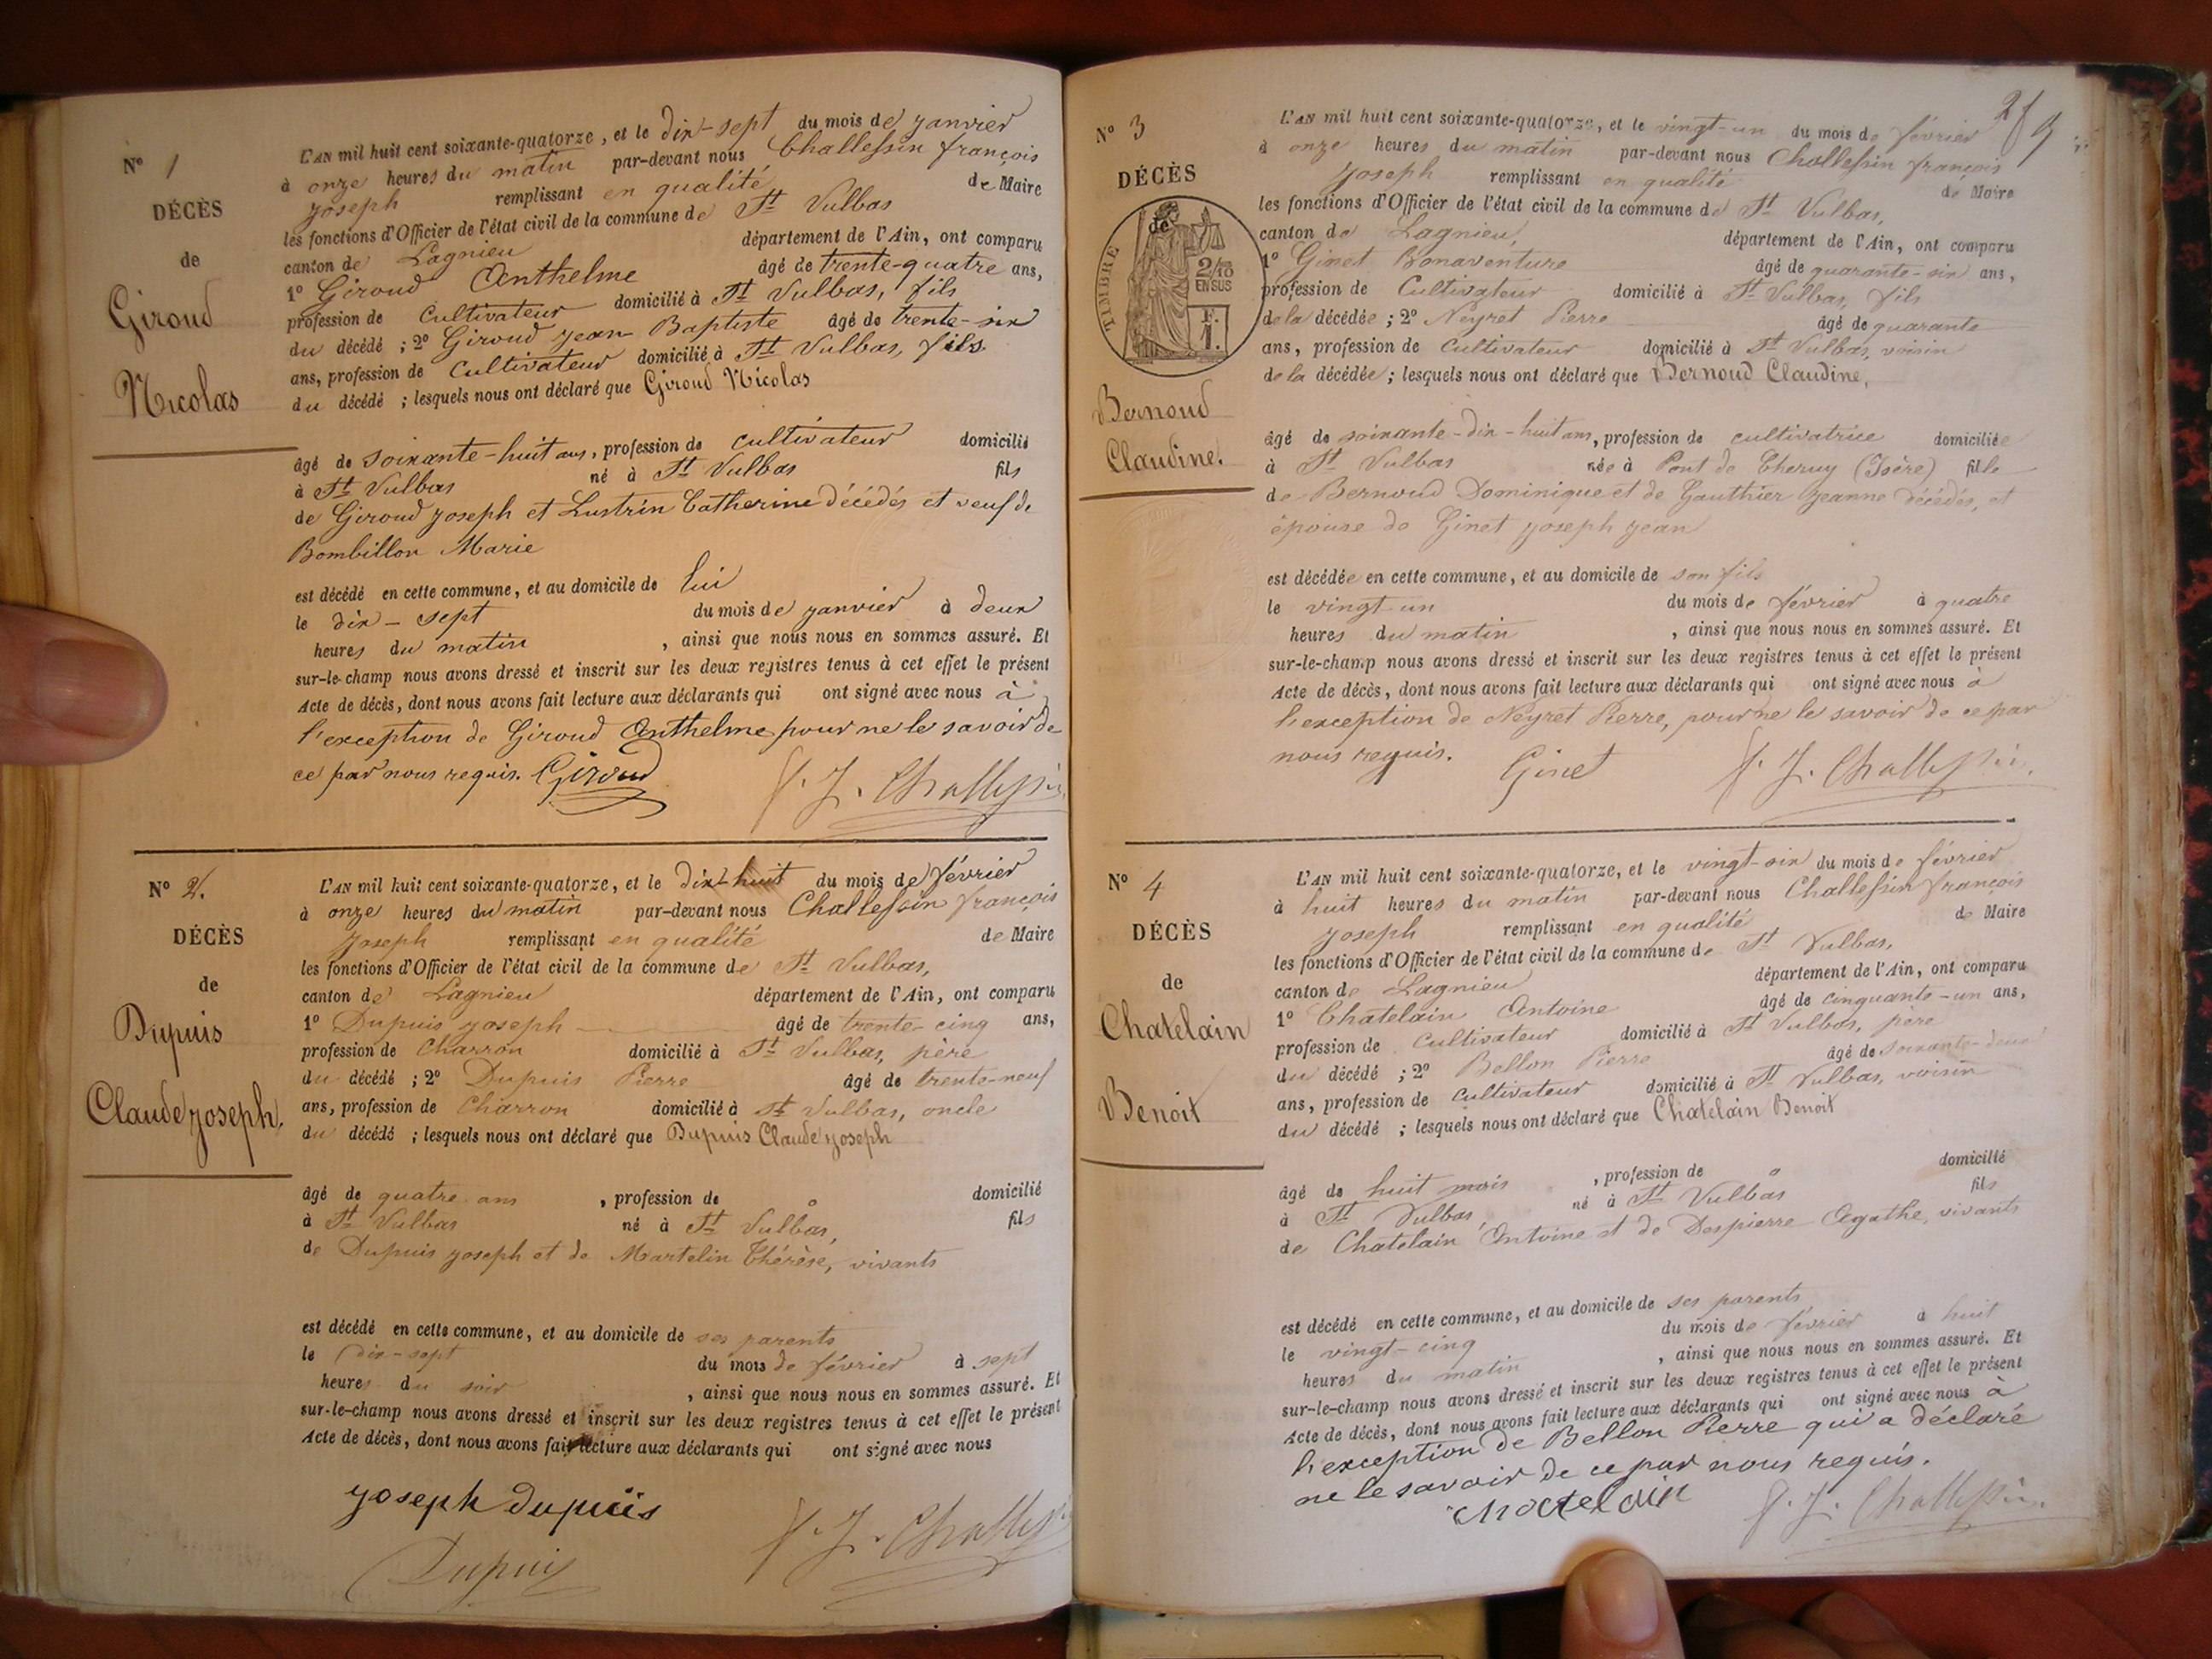 N° 1
DÉCÈS
de
Giroud
Nicolas
L'AN mil huit cent soixante-quatorze, et le dix-sept du mois de janvier
à onze heures du matin par-devant nous Challessin françois
joseph remplissant en qualité de Maire
les fonctions d'Officier de l'état civil de la commune de St Vulbas
canton de Lagnieu département de l'Ain, ont comparu
1° Giroud Anthelme âgé de trente-quatre ans,
profession de Cultivateur domicilié à St Vulbas, fils
du décédé ; 2° Giroud jean Baptiste âgé de trente-six
ans, profession de Cultivateur domicilié à St Vulbas, fils
du décédé ; lesquels nous ont déclaré que Giroud Nicolas
âgé de soixante-huit ans, profession de cultivateur domicilié
à St Vulbas né à St Vulbas fils
de Giroud joseph et Lustrin Catherine décédés et veuf de
Bombillon Marie
est décédé en cette commune, et au domicile de lui
le dix-sept du mois de janvier à deux
heures du matin , ainsi que nous nous en sommes assuré. Et
sur-le-champ nous avons dressé et inscrit sur les deux registres tenus à cet effet le présent
Acte de décès, dont nous avons fait lecture aux déclarants qui ont signé avec nous à
l'exception de Giroud Anthelme pour ne le savoir de
ce par nous requis. Giroud f. J. Challessin
N° 2.
DÉCÈS
de
Dupuis
Claude joseph.
L'AN mil huit cent soixante-quatorze, et le dix-huit du mois de février
à onze heures du matin par-devant nous Challessin françois
joseph remplissant en qualité de Maire
les fonctions d'Officier de l'état civil de la commune de St Vulbas,
canton de Lagnieu département de l'Ain, ont comparu
1° Dupuis joseph âgé de trente-cinq ans,
profession de Charron domicilié à St Vulbas, père
du décédé ; 2° Dupuis Pierre âgé de trente-neuf
ans, profession de Charron domicilié à St Vulbas, oncle
du décédé ; lesquels nous ont déclaré que Dupuis Claude joseph
âgé de quatre ans , profession de domicilié
à St Vulbas né à St Vulbas, fils
de Dupuis joseph et de Martelin Thérèse, vivants
est décédé en cette commune, et au domicile de ses parents
le dix-sept du mois de février à sept
heures du soir , ainsi que nous nous en sommes assuré. Et
sur-le-champ nous avons dressé et inscrit sur les deux registres tenus à cet effet le présent
Acte de décès, dont nous avons fait lecture aux déclarants qui ont signé avec nous
joseph dupuis
Dupuis f. J. Challessin
N° 3
DÉCÈS
de
TIMBRE
2/10
EN SUS
F.
1.
Bernoud
Claudine.
L'AN mil huit cent soixante-quatorze, et le vingt-un du mois de février
à onze heures du matin par-devant nous Challessin françois
joseph remplissant en qualité de Maire
les fonctions d'Officier de l'état civil de la commune de St Vulbas,
canton de Lagnieu, département de l'Ain, ont comparu
1° Ginet Bonaventure âgé de quarante-six ans,
profession de Cultivateur domicilié à St Vulbas, fils
de la décédée ; 2° Neyret Pierre âgé de quarante
ans, profession de Cultivateur domicilié à St Vulbas, voisin
de la décédée ; lesquels nous ont déclaré que Bernoud Claudine,
âgé de soixante-dix-huit ans, profession de cultivatrice domiciliée
à St Vulbas née à Pont de Cheruy (Isère) fille
de Bernoud Dominique et de Gauthier jeanne décédés, et
épouse de Ginet joseph jean
est décédée en cette commune, et au domicile de son fils
le vingt-un du mois de février à quatre
heures du matin , ainsi que nous nous en sommes assuré. Et
sur-le-champ nous avons dressé et inscrit sur les deux registres tenus à cet effet le présent
Acte de décès, dont nous avons fait lecture aux déclarants qui ont signé avec nous à
l'exception de Neyret Pierre, pour ne le savoir de ce par
nous requis. Ginet f. J. Challessin.
N° 4
DÉCÈS
de
Chatelain
Benoit
L'AN mil huit cent soixante-quatorze, et le vingt-six du mois de février
à huit heures du matin par-devant nous Challessin françois
joseph remplissant en qualité de Maire
les fonctions d'Officier de l'état civil de la commune de St Vulbas,
canton de Lagnieu département de l'Ain, ont comparu
1° Chatelain Antoine âgé de cinquante-un ans,
profession de Cultivateur domicilié à St Vulbas, père
du décédé ; 2° Bellon Pierre âgé de soixante-deux
ans, profession de Cultivateur domicilié à St Vulbas, voisin
du décédé ; lesquels nous ont déclaré que Chatelain Benoit
âgé de huit mois , profession de domicilié
à St Vulbas, né à St Vulbas fils
de Chatelain Antoine et de Despierre Agathe, vivants
est décédé en cette commune, et au domicile de ses parents
le vingt-cinq du mois de février à huit
heures du matin , ainsi que nous nous en sommes assuré. Et
sur-le-champ nous avons dressé et inscrit sur les deux registres tenus à cet effet le présent
Acte de décès, dont nous avons fait lecture aux déclarants qui ont signé avec nous à
l'exception de Bellon Pierre qui a déclaré
ne le savoir de ce par nous requis.
Chatelain f. J. Challessin.